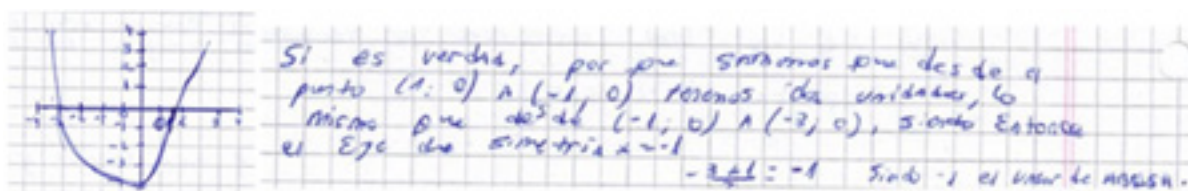 Si es verdad, por que sabemos que desde el
punto (1; 0) ∧ (-1, 0) tenemos dos unidades, lo
mismo que desde (-1; 0) ∧ (-3; 0), siendo Entonces
el Eje de simetria x=-1
-3+1 = -1 siendo -1 el valor de